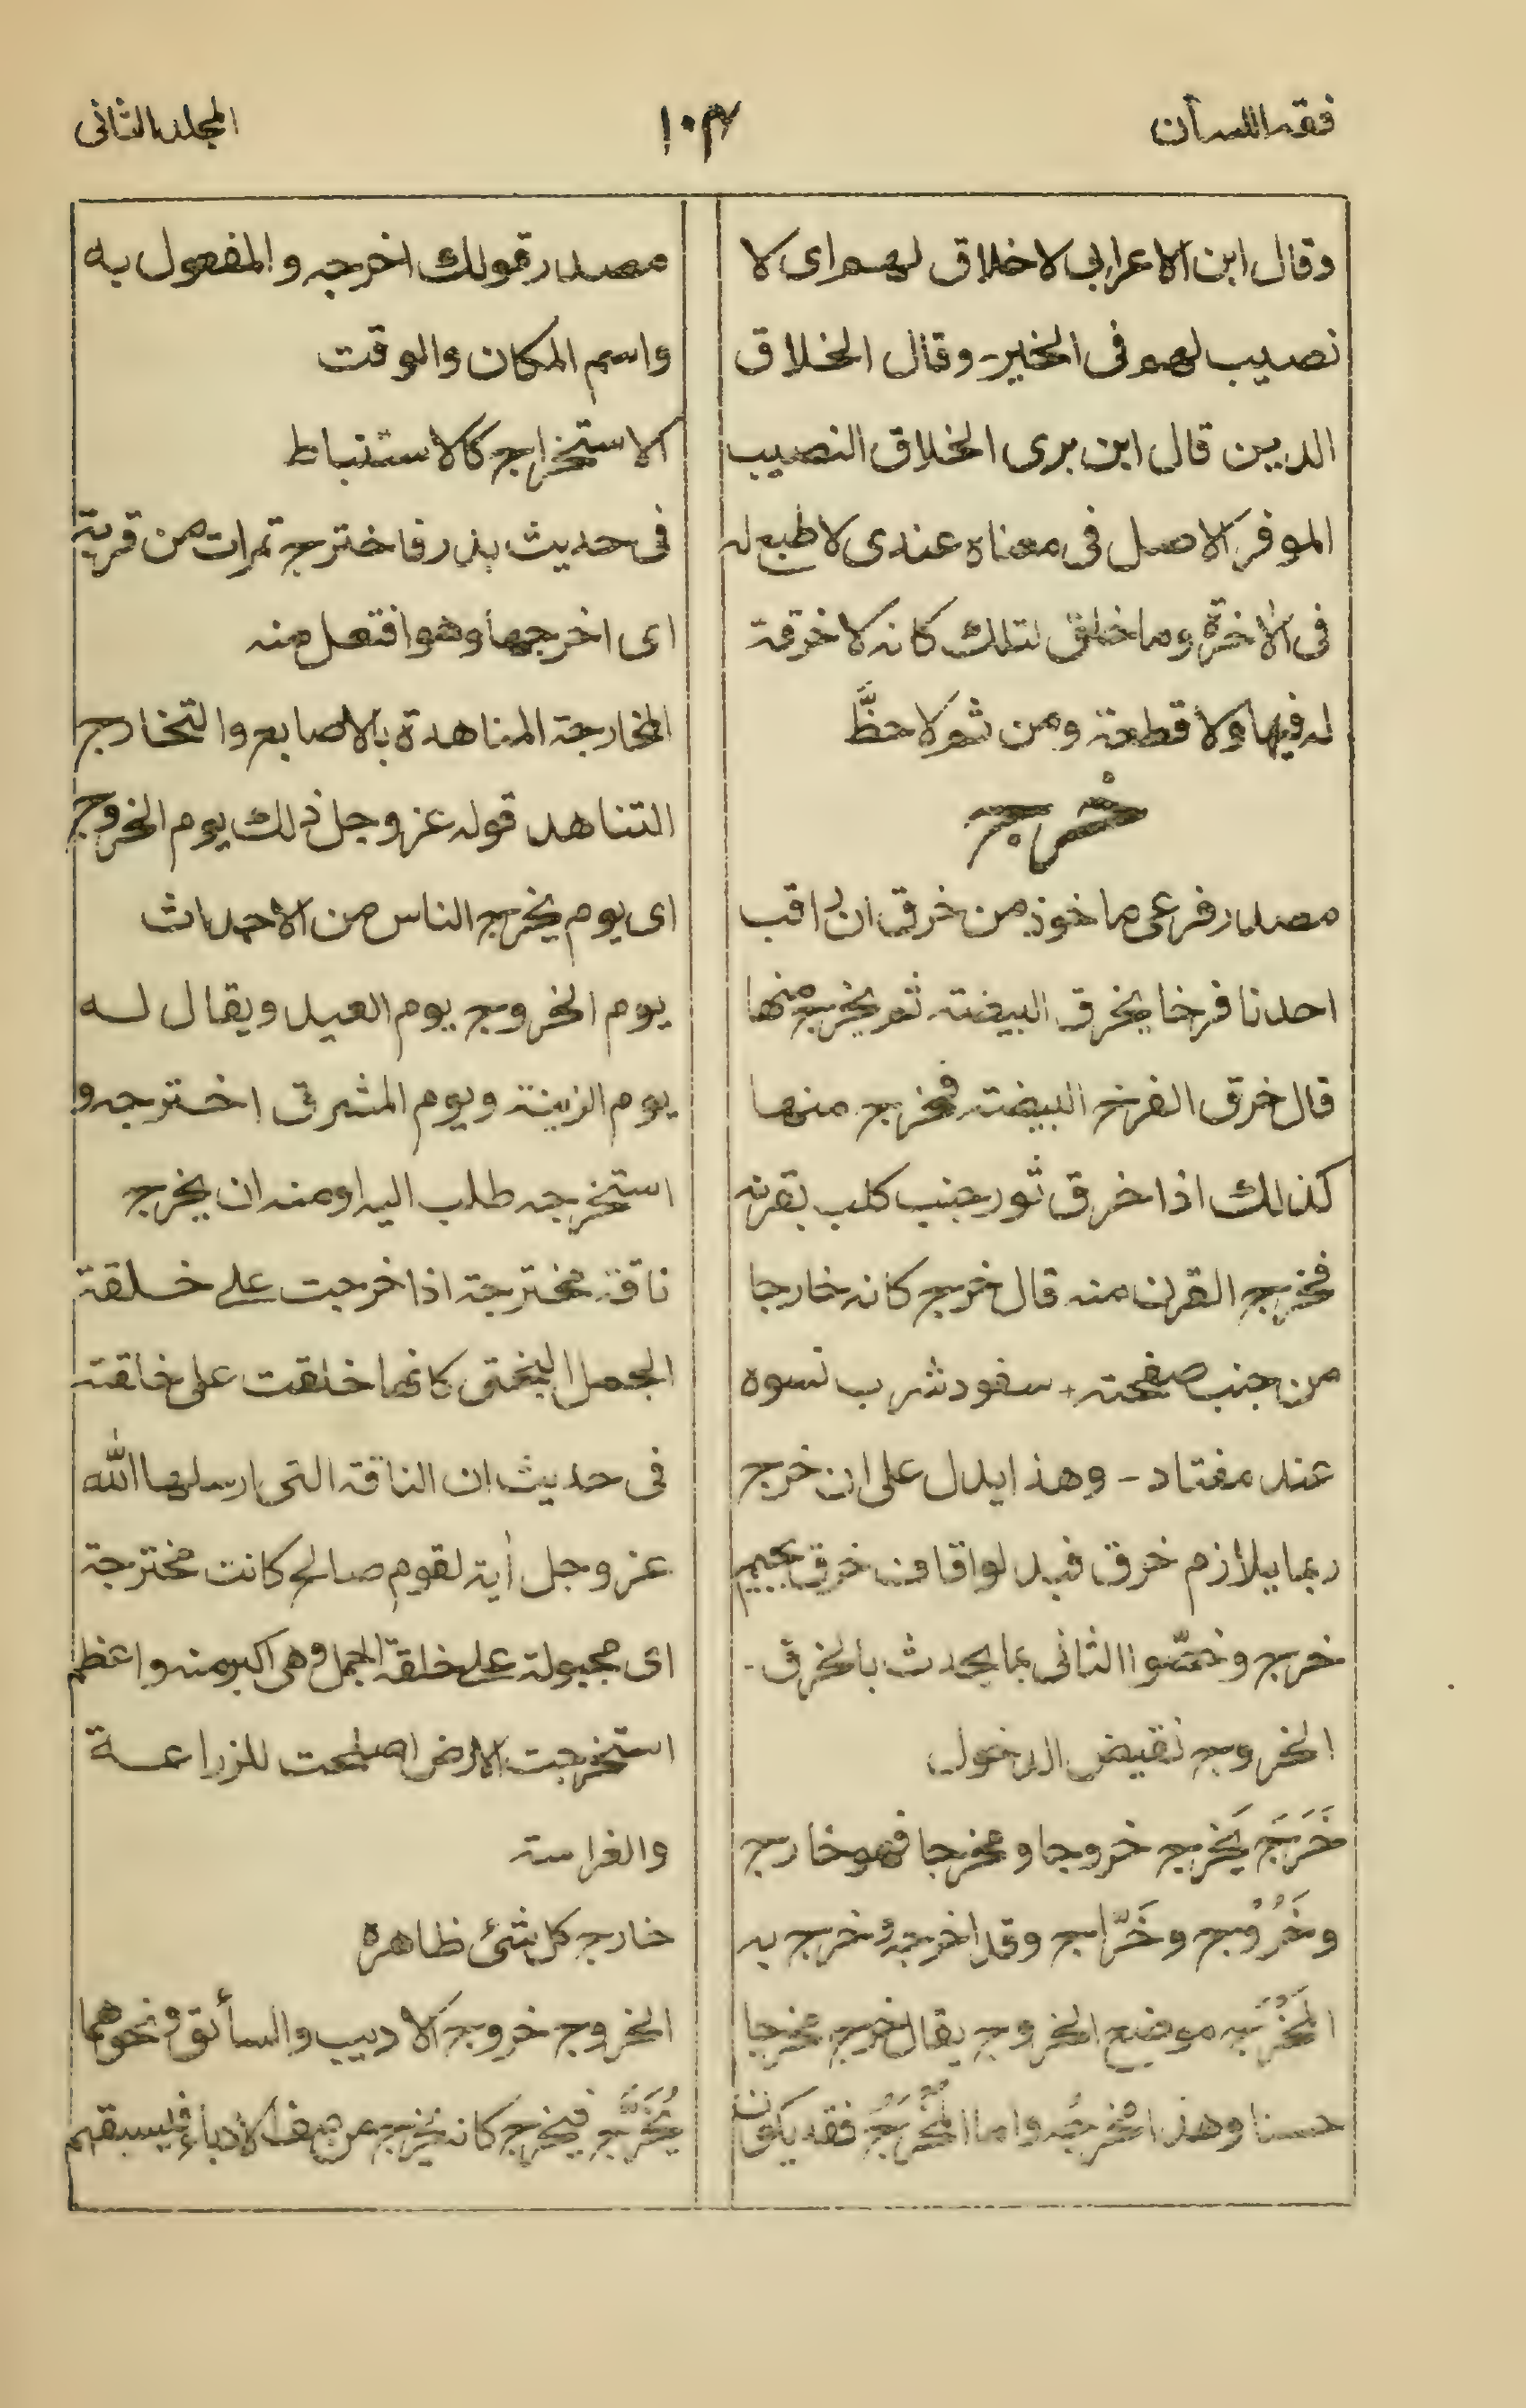 فقه اللسان
١٠٣
المجلد الثانى
وقال ابن الاعرابى لا خلاق لهم اى لا
نصيب لهم فى الخير۔ وقال الخلاق
الدين قال ابن برى الخلاق النصيب
الموفر الاصل فى معناه عندى لا طبع له
فى الأخرة وما خلق لتلك كانه لا خرقة
له فيها ولا قطعة ومن ثم لا حظَّ
خرج
مصدر فرعى ماخوذ من خرق ان راقب
احدنا فرخا يخرق البيضة ثم يخرج منها
قال خرق الفرخ البيضة فخرج منها
كذلك اذا خرق ثور جنب كلب بقرنه
فخرج القرن منه قال خرج كانه خارجا
من جنب صفحته + سفود شرب نسوه
عند مفتاد - وهذا يدل على ان خرج
ربما يلازم خرق فبدلوا قاف خرق بجيم
خرج وخصّوا الثانى بما يحدث بالخرق -
الخروج نقيض الدخول
خَرَجَ يَخرج خروجا ومخرجا فهو خارج
وخَرُوْج وخَرّاج وقد اخرجهُ وخرج به
المَخْرَج موضع الخروج يقال خرج مخرجا
حسنا وهذا مخرجُه واما المُخْرَجُ فقد يكون
مصدر قولك اخرجه والمفعول به
واسم المكان والوقت
الاستخراج كالاستنباط
فى حديث بدر فاخترج تمرات من قربة
اى اخرجها وهو افتعل منه
المخارجة المناهدة بالاصابع والتخارج
التناهد قوله عز وجل ذلك يوم الخروج
اى يوم يخرج الناس من الاجداث
يوم الخروج يوم العيد ويقال له
يوم الزينة ويوم المشرق اخترجه و
استخرجه طلب اليه او منه ان يخرج
ناقة مخترجة اذا خرجت على خلقة
الجمل البختى كانما خلقت على خلقة
فى حديث ان الناقة التى ارسلها الله
عز وجل أية لقوم صالح كانت مخترجة
اى مجبولة على خلقة الجمل وهى اكبر منه واعظم
استخرجت الارض اصلحت للزراعة
والغراسة
خارج كل شئ ظاهره
الخروج خروج الاديب والسأئق ونحوهما
يُخَرَّج فيخرج كانه يخرج من صف الادباء فيسبقهم